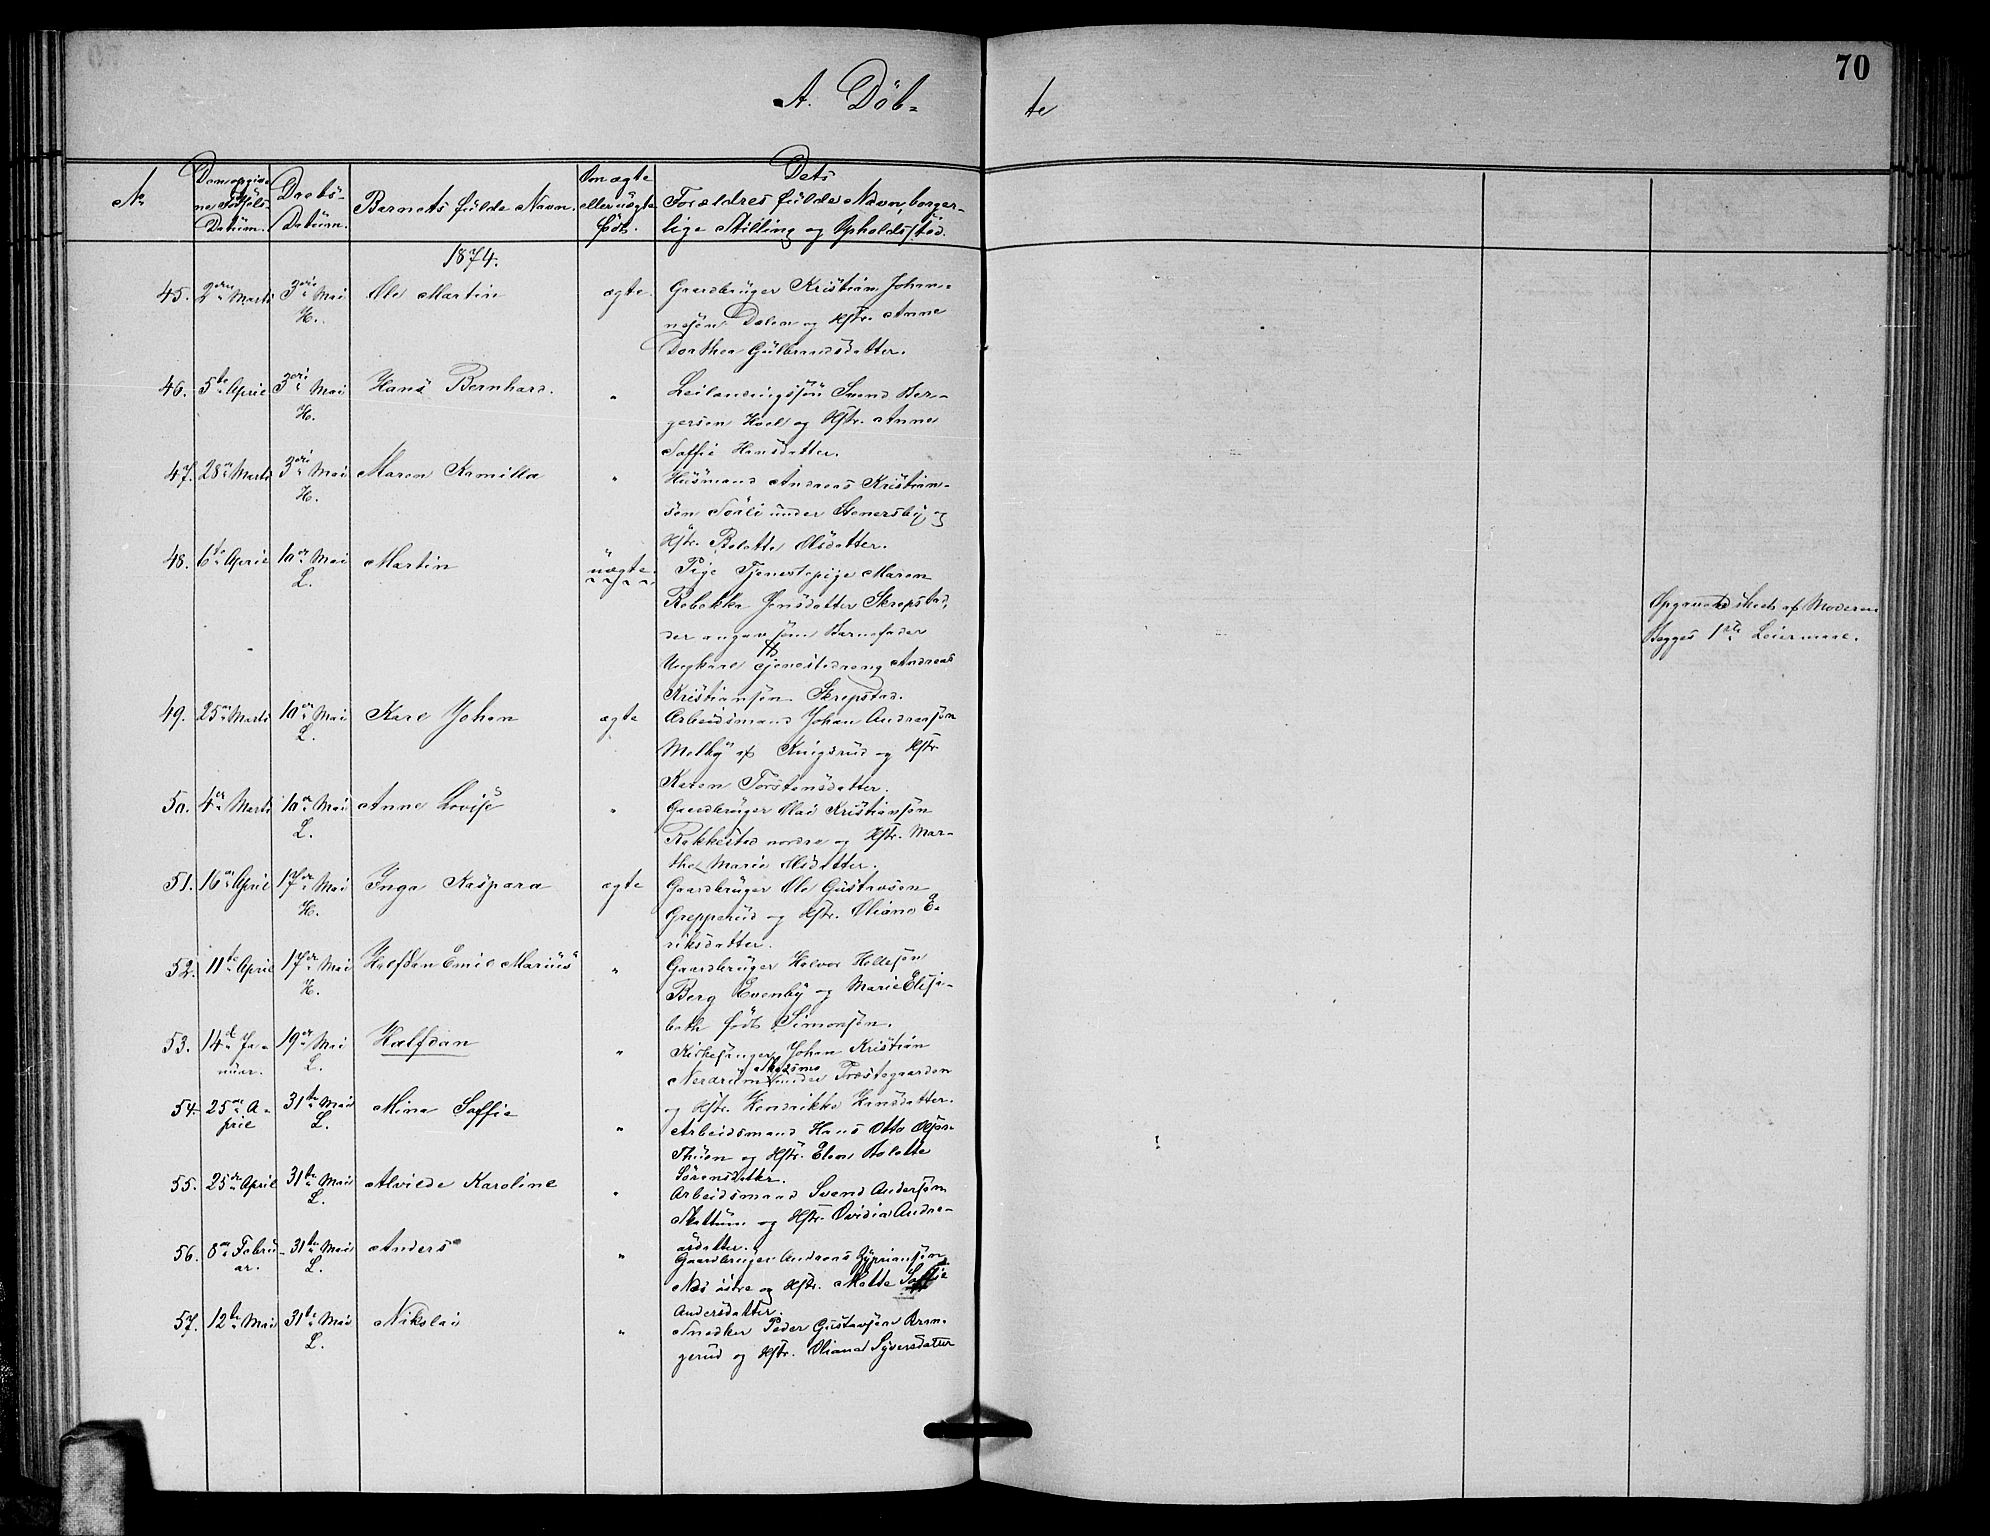 70
A. Döb-
te
No
Den opgivne Födsels-Datum.
Daabs-Datum.
Barnets fulde Navn.
Om ægte eller uægte födt.
Dets
Forældres fulde Navn, borger-
lige Stilling og Opholdssted.
1874.
45. 2den Marts 3die Mai H. Ole Martin ægte. Gaardbruger Kristian Johan-
nesen Dalen og Hstr. Anne
Dorthea Gulbrandsdatter.
46. 5te April 3die Mai H. Hans Bernhard. " Leilændingssön Svend Ber-
gersen Hoel og Hstr. Anne
Soffie Hansdatter.
47. 28de Marts 3die Mai H. Maren Kamilla " Husmand Andreas Kristian-
sen Sörli under Stenersby og
Hstr. Bolette Olsdatter.
48. 6te April 10de Mai L. Martin uægte. Pige Tjenestepige Maren
Rebekka Jensdatter Skrepstad,
der angav som Barnefader
Ungkarl Tjenestedreng Andreas
Kristiansön Skrepstad.
Opgavet skeet af Moderen
Begges 1ste Leiermaal.
49. 25de Marts 10de Mai L. Karl Johan ægte Arbeidsmand Johan Andreasön
Melby af Krigsrud og Hstr
Karen Torstensdatter.
50. 4de Marts 10de Mai L. Anne Lovise " Gaardbruger Olai Kristiansön
Rakkestad nordre og Hstr. Mar-
the Marie Olsdatter.
51. 16de April 17de Mai H. Inga Kaspara ægte Gaardbruger Ole Gustavsen
Grepperud og Hstr. Oliane E-
riksdatter.
52. 11te April 17de Mai H. Halfdan Emil Marius " Gaardbruger Halvor Hellesön
Berg Evenby og Marie Elisa-
beth födt Simonsön.
53. 14de Ja-
nuar. 19de Mai L. Halfdan " Kirkesanger Johan Kristian
Nerdrum under Præstegaarden
og Hstr. Hendrikke Hansdatter.
54. 25de A-
pril 31te Mai L. Mina Soffie " Arbeidsmand Hans Otto Olsen
Thuen og Hstr. Elen Bolette
Sörensdatter.
55. 25de April 31te Mai L. Alvilde Karoline " Arbeidsmand Svend Andersön
Stattum og Hstr. Ovidia Andre-
asdatter.
56. 8de Febru-
ar. 31te Mai L. Anders " Gaardbruger Andreas Zypriansön
Næs östre og Hstr. Mette Soffie
Andersdatter.
57. 12te Mai 31te Mai L. Nikolai " Snedker Peder Gustavsön Brin-
gerud og Hstr. Oliane Syversdatter